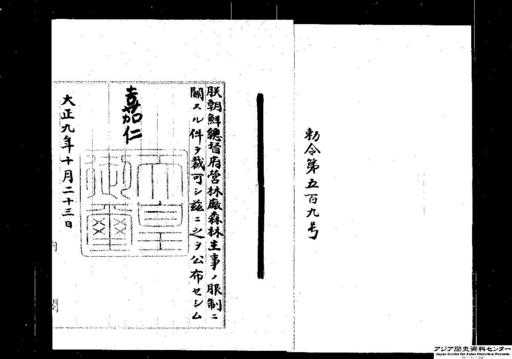 勅令第五百九号
朕朝鮮總督府營林廠森林主事ノ服制ニ
關スル件ヲ裁可シ茲ニ之ヲ公布セシム
嘉仁
天皇
御璽
大正九年十月二十三日
内閣
アジア歴史資料センター
Japan Center for Asian Historical Records